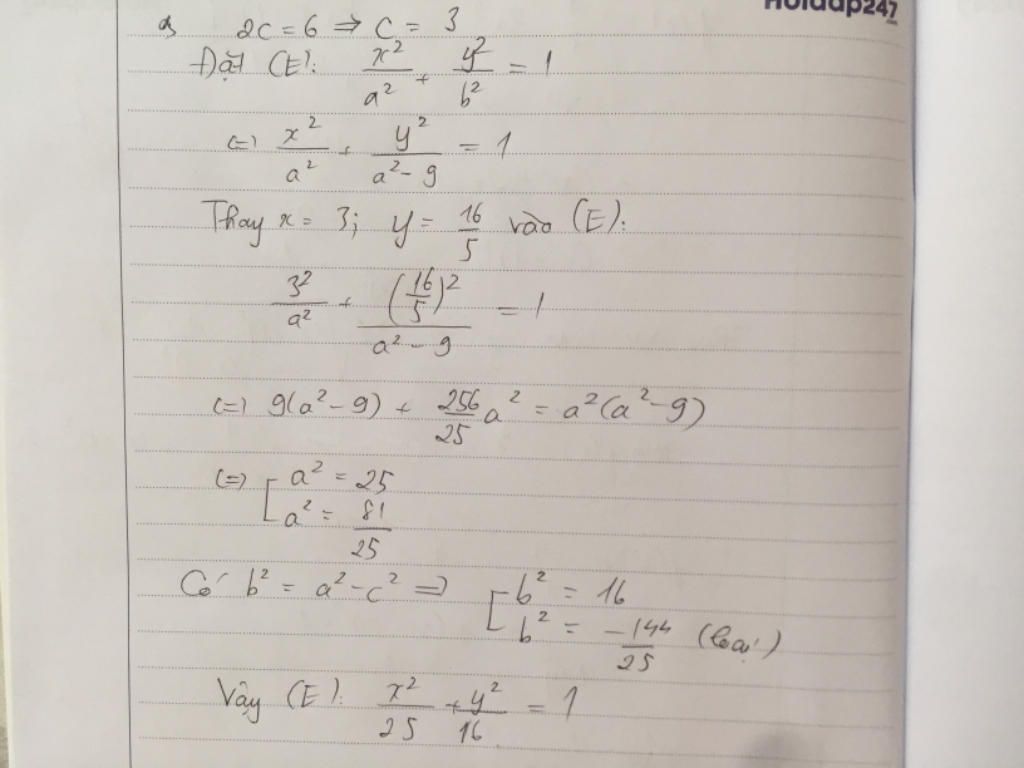 Hoidap247
a) 2c = 6 ⇒ c = 3
Đặt (E): x²/a² + y²/b² = 1
(=) x²/a² + y²/(a² - 9) = 1
Thay x = 3; y = 16/5 vào (E):
3²/a² + (16/5)²/(a² - 9) = 1
(=) 9(a² - 9) + 256/25 a² = a²(a² - 9)
(=) [ a² = 25
a² = 81/25
Có b² = a² - c² =) [ b² = 16
b² = -144/25 (loại)
Vậy (E): x²/25 + y²/16 = 1